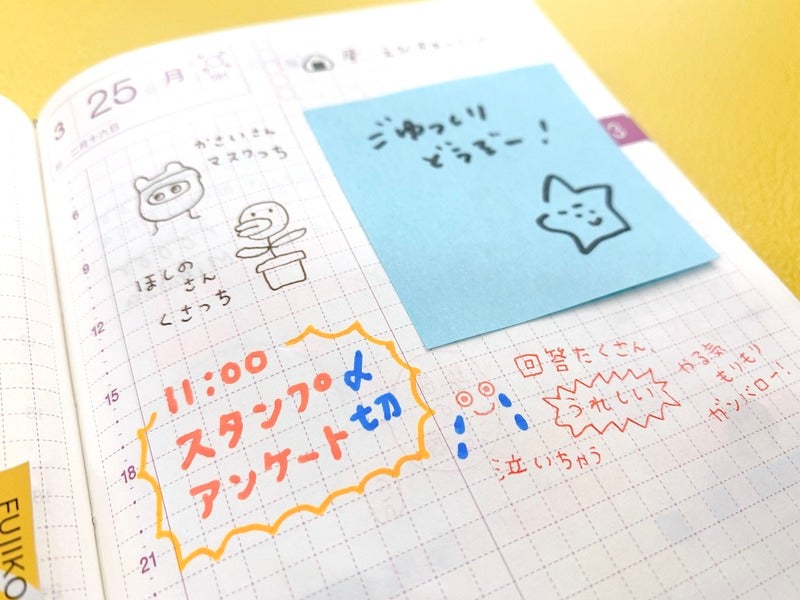 3
25 月
二月十六日
かさいさん
マスクっち
ほしの
さん
くさっち
ごゆっくり
どうぞー!
3
6
9
12
15
18
21
11:00
スタンプ
アンケート
〆
切
回答たくさん
うれしい
泣いちゃう
やる気
もりもり
ガンバロー!
FUJIKO